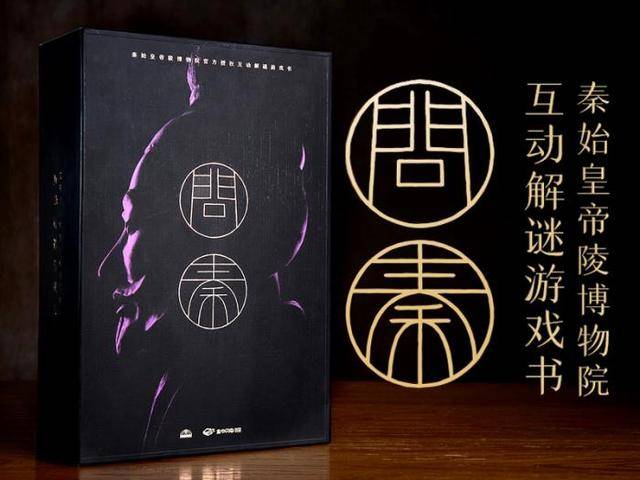 秦始皇帝陵博物院官方授权互动解谜游戏书
問
秦
問
秦
秦始皇帝陵博物院
互动解谜游戏书